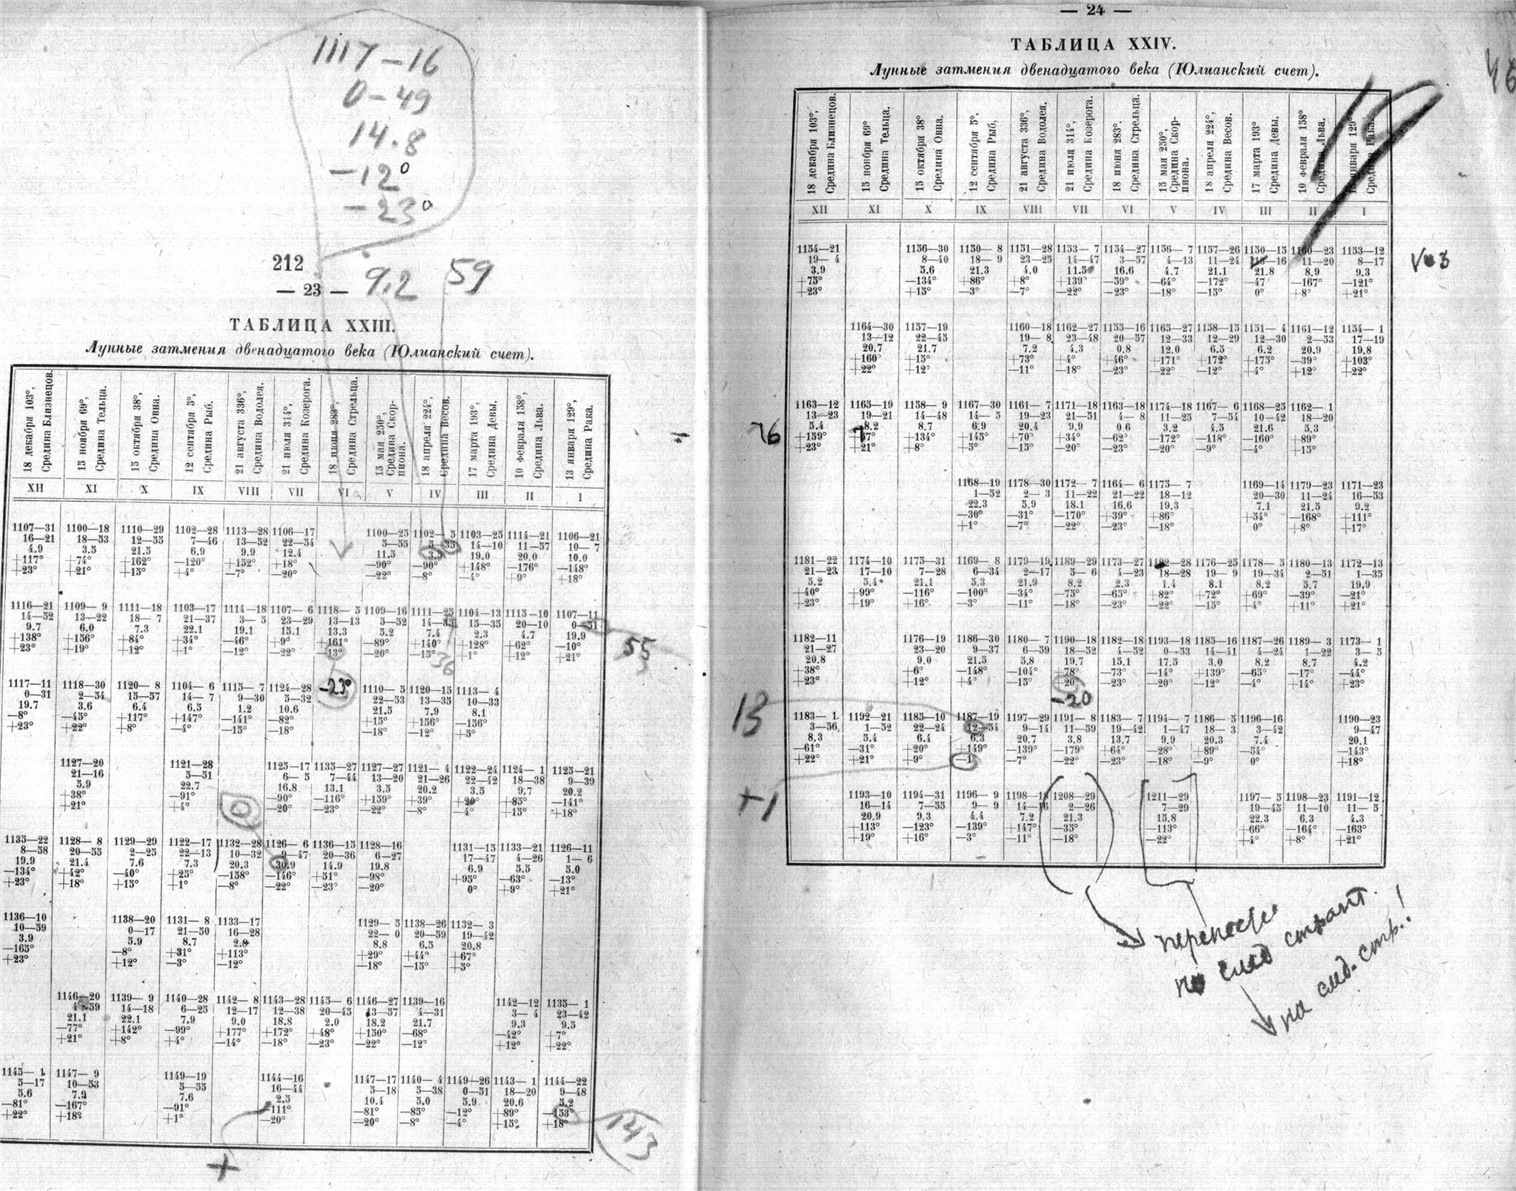 1117—16
0—49
14.8
—12°
—23°
212
— 23 —
9.2
59
ТАБЛИЦА XXIII.
Лунные затмения двенадцатого века (Юлианский счет).
18 декабря 103°, Средина Близнецов.
15 ноября 69°, Средина Тельца.
15 октября 38°, Средина Овна.
12 сентября 5°, Средина Рыб.
21 августа 336°, Средина Водолея.
21 июля 314°, Средина Козерога.
18 июня 283°, Средина Стрельца.
15 мая 250°, Средина Скорпиона.
18 апреля 224°, Средина Весов.
17 марта 193°, Средина Девы.
10 февраля 158°, Средина Льва.
13 января 129°, Средина Рака.
XII XI X IX VIII VII VI V IV III II I
1107—31 1100—18 1110—29 1102—28 1113—28 1106—17 1100—25 1102— 5 1103—25 1114—21 1106—21
16—21 18—53 12—55 7—46 13—52 22—54 5—55 14—10 11—57 10— 7
4.9 3.5 21.5 6.9 9.9 12.4 11.5 19.0 20.0 10.0
+117° +74° +162° —120° +152° +18° —90° —90° +148° —176° —148°
+23° +21° +15° +4° —7° —20° —22° —8° —4° +9° +18°
1116—21 1109— 9 1111—18 1103—17 1114—18 1107— 6 1118— 5 1109—16 1111—25 1104—13 1115—10 1107—11
14—52 13—22 18— 7 21—37 3— 5 23—29 13—13 5—52 15—35 20—10 0—51
9.7 6.0 7.3 22.1 19.1 15.1 13.3 5.2 7.4 2.3 4.7 19.9
+138° +156° +84° +34° —46° +9° +161° —89° +140° +128° —62° —10°
+23° +19° +12° +1° —12° —22° —20° —15° +1° +12° +21°
55
36
1117—11 1118—30 1120— 8 1104— 6 1115— 7 1124—28 —23° 1110— 5 1120—15 1113— 4
0—31 2—54 15—57 14— 7 9—30 5—32 22—53 13—35 10—33
19.7 3.6 6.4 6.5 1.2 10.6 21.5 7.9 8.1
—8° —45° +117° +147° —141° —82° +15° +156° —156°
+23° +22° +8° —4° —15° —18° —18° —12° +5°
1127—20 1121—28 1125—17 1135—27 1127—27 1121— 4 1122—24 1124— 1 1125—21
21—16 5—51 6— 5 7—44 13—20 21—26 22—42 18—38 9—39
5.9 22.7 16.8 13.1 3.5 20.2 3.5 9.7 20.2
+38° —91° —90° —116° +159° +39° +20° +85° —141°
+21° +4° —20° —23° —22° —8° —4° +15° +18°
1135—22 1128— 8 1129—29 1122—17 1132—28 1126— 6 1136—15 1128—16 1131—15 1133—21 1126—11
8—58 20—55 2—25 22—13 10—32 20—36 6—27 17—47 4—26 1— 6
19.9 21.4 7.6 7.3 20.3 14.9 19.8 6.9 5.5 5.0
—134° +42° —40° +25° —158° —146° +51° —98° +95° —63° —13°
+23° +18° +15° +1° —8° —22° —23° —20° 0° +9° +21°
1136—10 1138—20 1131— 8 1133—17 1129— 5 1138—26 1132— 3
10—59 0—17 21—50 16—28 22— 0 20—59 19—42
3.9 5.9 8.7 8.8 6.5 20.8
—165° —8° +31° +113° +29° +44° +67°
+23° +12° —3° —12° —18° —15° +5°
1146—20 1139— 9 1140—28 1142— 8 1143—28 1145— 6 1146—27 1139—16 1142—12 1135— 1
14—18 6—25 12—17 12—38 20—45 13—57 4—31 3— 4 23—42
21.1 22.1 7.9 9.0 18.8 2.0 18.2 21.7 9.3 9.5
—77° +142° —99° +177° +172° +48° +150° —68° —42° +7°
+21° +8° +4° —14° —18° —23° —22° —12° +12° +22°
1145— 1 1147— 9 1149—19 1144—16 1147—17 1140— 4 1149—26 1143— 1 1144—22
5—17 10—53 5—55 16—44 5—18 5—38 0—51 18—20 9—48
5.6 7.9 7.6 2.5 10.4 5.0 5.9 20.6 5.2
—81° —167° —91° 111° —81° —85° —12° +89°
+22° +18° +1° —20° —20° —8° —4° +15° +18°
143
+
— 24 —
ТАБЛИЦА XXIV.
Лунные затмения двенадцатого века (Юлианский счет).
18 декабря 103°, Средина Близнецов.
15 ноября 69° Средина Тельца.
15 октября 38° Средина Овна.
12 сентября 5°, Средина Рыб,
21 августа 336°, Средина Водолея.
21 июля 314°, Средина Козерога.
18 июня 283°. Средина Стрельца.
15 мая 250°, Средина Скорпиона.
18 апреля 224°, Средина Весов.
17 марта 193° Средина Девы.
10 февраля 158° Средина Льва.
января 129° Средина Рака.
XII XI X IX VIII VII VI V IV III II I
1154—21 1156—30 1150— 8 1151—28 1153— 7 1154—27 1156— 7 1157—26 1150—15 1160—23 1153—12
19— 4 8—40 18— 9 23—25 14—47 3—57 4—13 11—24 11—20 8—17
3.9 5.6 21.3 4.0 11.5 16.6 4.7 21.1 21.8 8.9 9.3
+75° —134° +86° +8° +139° —59° —64° —172° —167° —121°
+23° +15° —3° —7° —22° —23° —18° —15° 0° +8° +21°
1164—30 1157—19 1160—18 1162—27 1155—16 1165—27 1158—15 1151— 4 1161—12 1154— 1
13—12 22—45 19— 8 23—48 20—57 12—33 12—29 12—30 2—53 17—19
20.7 21.7 7.2 4.3 0.8 12.0 6.5 6.2 20.9 19.8
+160° +15° +73° +4° +46° +171° +172° +175° —39° +103°
+22° +12° —11° —18° —23° —22° —12° +4° +12° +22°
1163—12 1165—19 1158— 9 1167—30 1161— 7 1171—18 1163—18 1174—18 1167— 6 1168—25 1162— 1
13—23 19—21 14—48 14— 5 19—23 21—51 4— 8 11—25 7—54 10—42 18—20
5.4 8.2 8.7 6.9 20.4 9.9 0.6 3.2 4.5 21.6 5.3
+159° +134° +145° +70° +34° —62° —172° —118° —160° +89°
+23° +21° +8° +5° —15° —20° —23° —20° —9° —4° +15°
76
1168—19 1178—30 1172— 7 1164— 6 1175— 7 1169—14 1179—23 1171—23
1—52 2— 3 11—22 21—22 18—12 20—30 11—24 16—53
22.3 5.9 18.1 16.6 19.3 7.1 21.5 9.2
—30° —31° —170° +39° +86° +54° —168° +111°
+1° —7° —22° —23° —18° 0° +8° +17°
1181—22 1174—10 1175—31 1169— 8 1179—19 1189—29 1173—27 1176—25 1178— 5 1180—13 1172—13
21—23 17—10 7—28 6—34 2—17 5— 6 4—23 18—28 19— 9 19—34 2—51 1—35
5.2 5.4 21.1 5.3 21.9 8.2 2.3 1.4 8.1 8.2 5.7 19.9
+40° +99° —116° —100° —34° —75° —65° +82° +72° +69° —39° —21°
+23° +19° +16° —3° —11° —18° —23° —22° —15° —4° +11° +21°
1182—11 1176—19 1186—30 1180— 7 1190—18 1182—18 1193—18 1185—16 1187—26 1189— 3 1173— 1
21—27 23—20 9—37 6—59 18—52 4—52 0—53 14—41 4—24 1—22 3— 5
20.8 9.0 21.5 5.8 19.7 15.1 17.5 3.0 8.2 8.7 4.2
+38° 0° —148° —104° —73° —14° +139° —65° —17° —44°
+23° +12° +4° —15° —23° —20° —12° —4° +14° +23°
—20
13
1183— 1 1192—21 1185—10 1187—19 1197—29 1191— 8 1183— 7 1194— 7 1186— 5 1196—16 1190—23
3—56 1—52 22—24 9—14 11—59 19—42 1—47 18— 3 3—42 9—47
8.3 5.4 6.4 6.3 20.7 3.8 13.7 9.9 20.3 7.4 20.1
—61° —31° +20° 149° —139° —179° +64° —28° +89° —54° —143°
+22° +21° +9° —7° —22° —23° —18° —9° 0° +18°
+1
1193—10 1194—31 1196— 9 1198—18 1208—29 1211—29 1197— 5 1198—23 1191—12
16—14 7—55 9— 9 2—26 7—29 19—45 11—10 11— 5
20.9 9.3 4.4 7.2 21.3 15.8 22.3 6.3 4.3
+113° —123° —139° +147° —35° —113° +66° —164° —163°
+19° +16° —3° —11° —18° —22° +4° +8° +21°
на след. стр.!